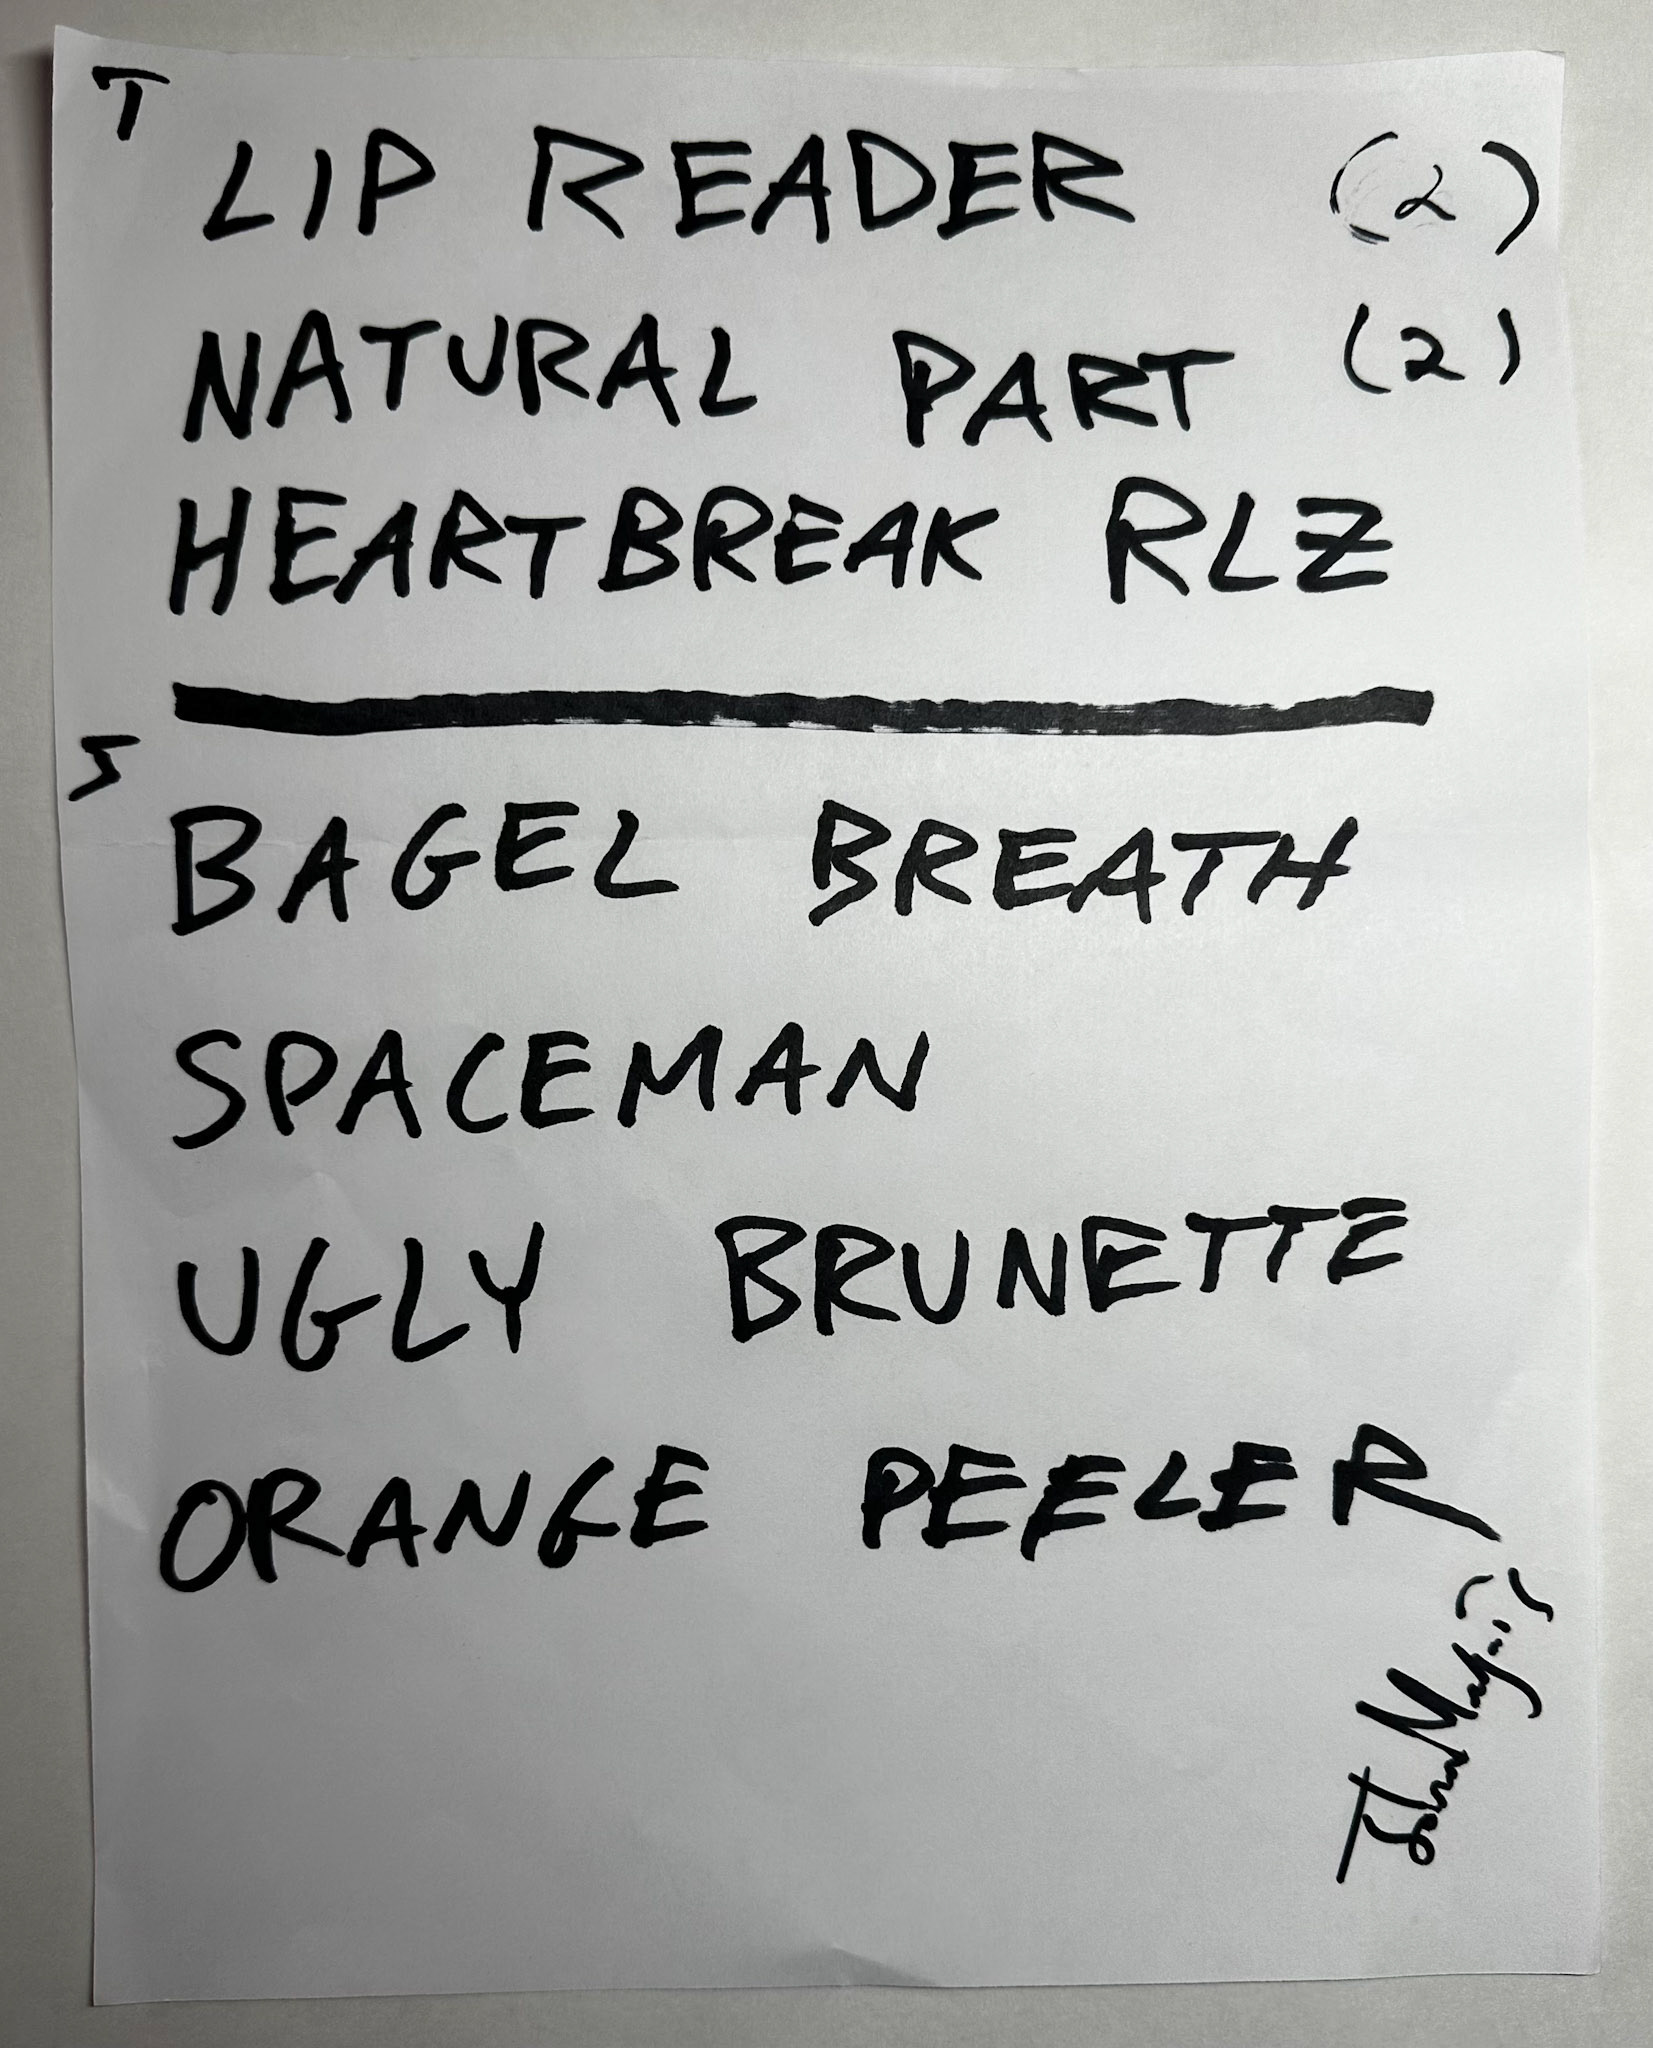 T
LIP READER (2)
NATURAL PART (2)
HEARTBREAK RLZ
S
BAGEL BREATH
SPACEMAN
UGLY BRUNETTE
ORANGE PEELER
John